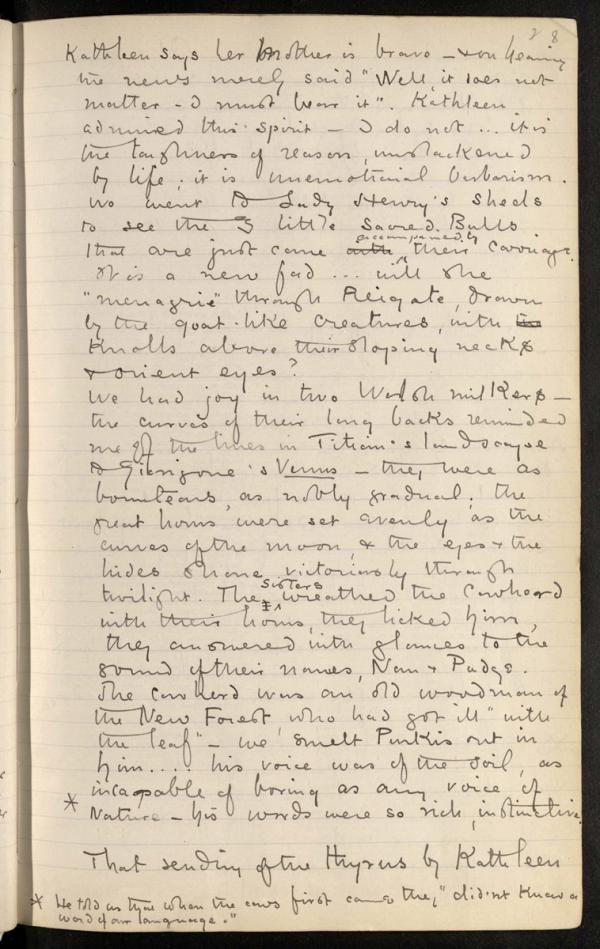 28
Kathleen says her brother is bravo — & on hearing
the news merely said "Well, it does not
matter - I must bear it". Kathleen
admired this spirit — I do not ... it is
the toughness of reason, unslackened
by life; it is unemotional barbarism.
We went to Lady Henry's sheds
to see the 3 little Sacred Bulls
that are just come with accompanied by their carriage.
It is a new fad ... will she
"menagrie" through Reigate, drawn
by the goat-like creatures, with the
knolls above their sloping necks
& orient eyes?
We had joy in two Welsh milkers —
the curves of their long backs reminded
me of the lines in Titian's landscape
to Giorgione's Venus — they were as
bounteous, as nobly gradual; the
great horns were set evenly as the
curves of the moon, & the eyes & the
hides shone victoriously through
twilight. The sisters wreathed the Cowherd
with their horns, they licked him,
they answered with glances to the
sound of their names, Nan & Pudge.
The Cowherd was an old woodman of
the New Forest, who had got ill "with
the leaf" — we smelt Purkis out in
him .... his voice was of the soil, as
incapable of boring as any voice of
* Nature — his words were so rich, instinctive.
That sending of the Thyrsus by Kathleen
* He told us that when the cows first came they "did'nt know a
word of our language."